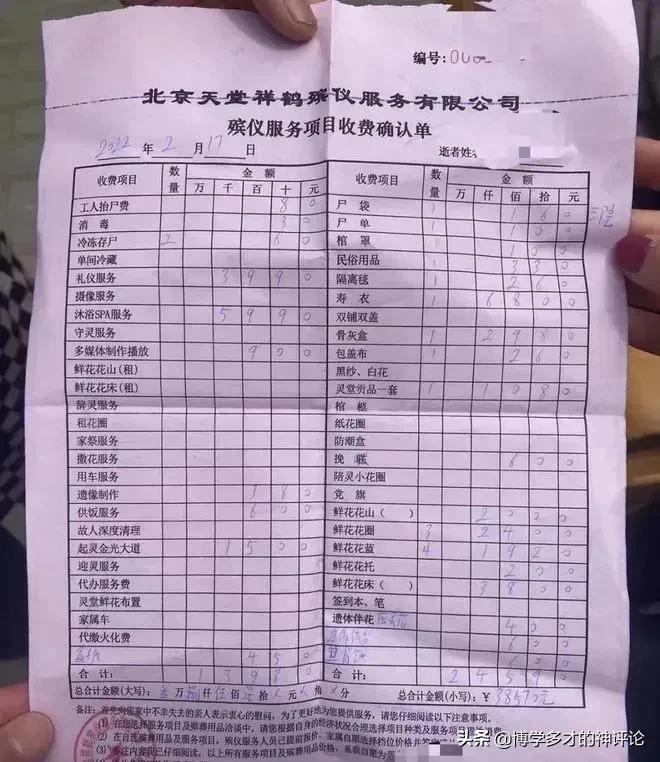 编号:
北京天堂祥鹤殡仪服务有限公司
殡仪服务项目收费确认单
2022 年 2 月 17 日 逝者姓
收费项目 数量 金额 万 千 百 十 元
工人抬尸费 8 0
消毒 3 0
冷冻存尸 2 6 0
单间冷藏
礼仪服务 3 9 9 0
摄像服务
沐浴SPA服务 5 9 9 0
守灵服务
多媒体制作播放 9 0 0
鲜花花山(租)
鲜花花床(租)
辞灵服务
租花圈
家祭服务
撒花服务
用车服务
遗像制作 3 8 0
供饭服务 6 0 0
故人深度清理
起灵金光大道 1 5 0 0
迎灵服务
代办服务费
灵堂鲜花布置
家属车
代缴火化费
4 5 0
合计: 1 3 9 8 0
收费项目 数量 金额 万 仟 佰 拾 元
尸袋 1 1 6 0
尸单 1 1 0 0
棺罩
民俗用品 1 3 3 0
隔离毯 1 2 6 0
寿衣 1 6 8 0 0
双铺双盖
骨灰盒 1 2 9 8 0
包盖布 1 2 6 0
黑纱、白花
灵堂贡品一套 1 1 0 8 0
棺柩
纸花圈
防潮盒
挽联 6 0 0
陪灵小花圈
党旗
鲜花花山( ) 2 0 0 0
鲜花花圈 3 2 4 0 0
鲜花花蓝 4 1 9 2 0
鲜花花托 2 0 0
鲜花花床( ) 3 8 0 0
签到本、笔
遗体伴花 4 0 0
6 0 0
6 0 0
合计: 2 4 5 9 0
总合计金额(大写): 万 仟 佰 拾 元 角 分 总合计金额(小写):¥38570元
备注:首先向您家中不幸失去的亲人表示衷心的慰问,为了更好地为您提供服务,请您仔细阅读以下注意事项。
(1)在您选择服务项目及殡葬用品洽谈中,请您根据自身的经济状况合理选择项目种类及服务
(2)在自选殡葬用品及服务项目,殡仪服务人员已提前报价,家属自愿选择档位价格并
(3)多注内容我已仔细阅读,以上所有服务项目及殡葬用品价格,系我自愿为
头条 @博学多才的神评论